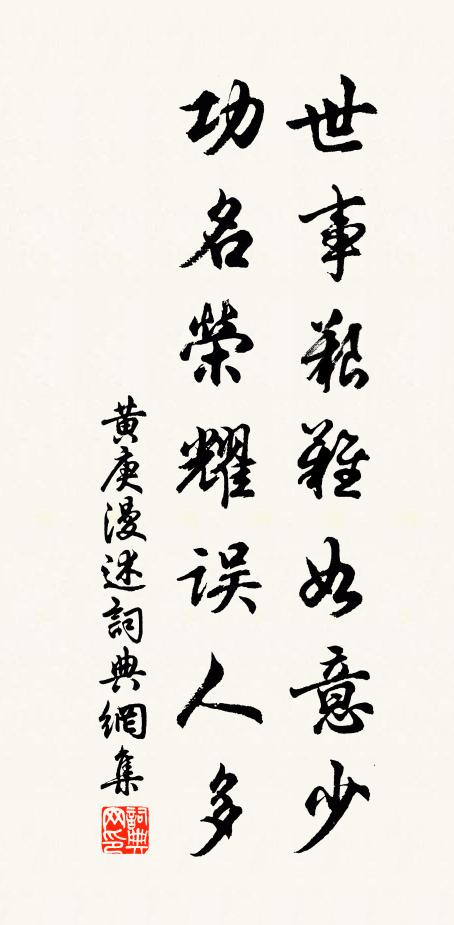 世事艱難如意少
功名榮耀誤人多
黃庚漫述詞典網集
詞典网印